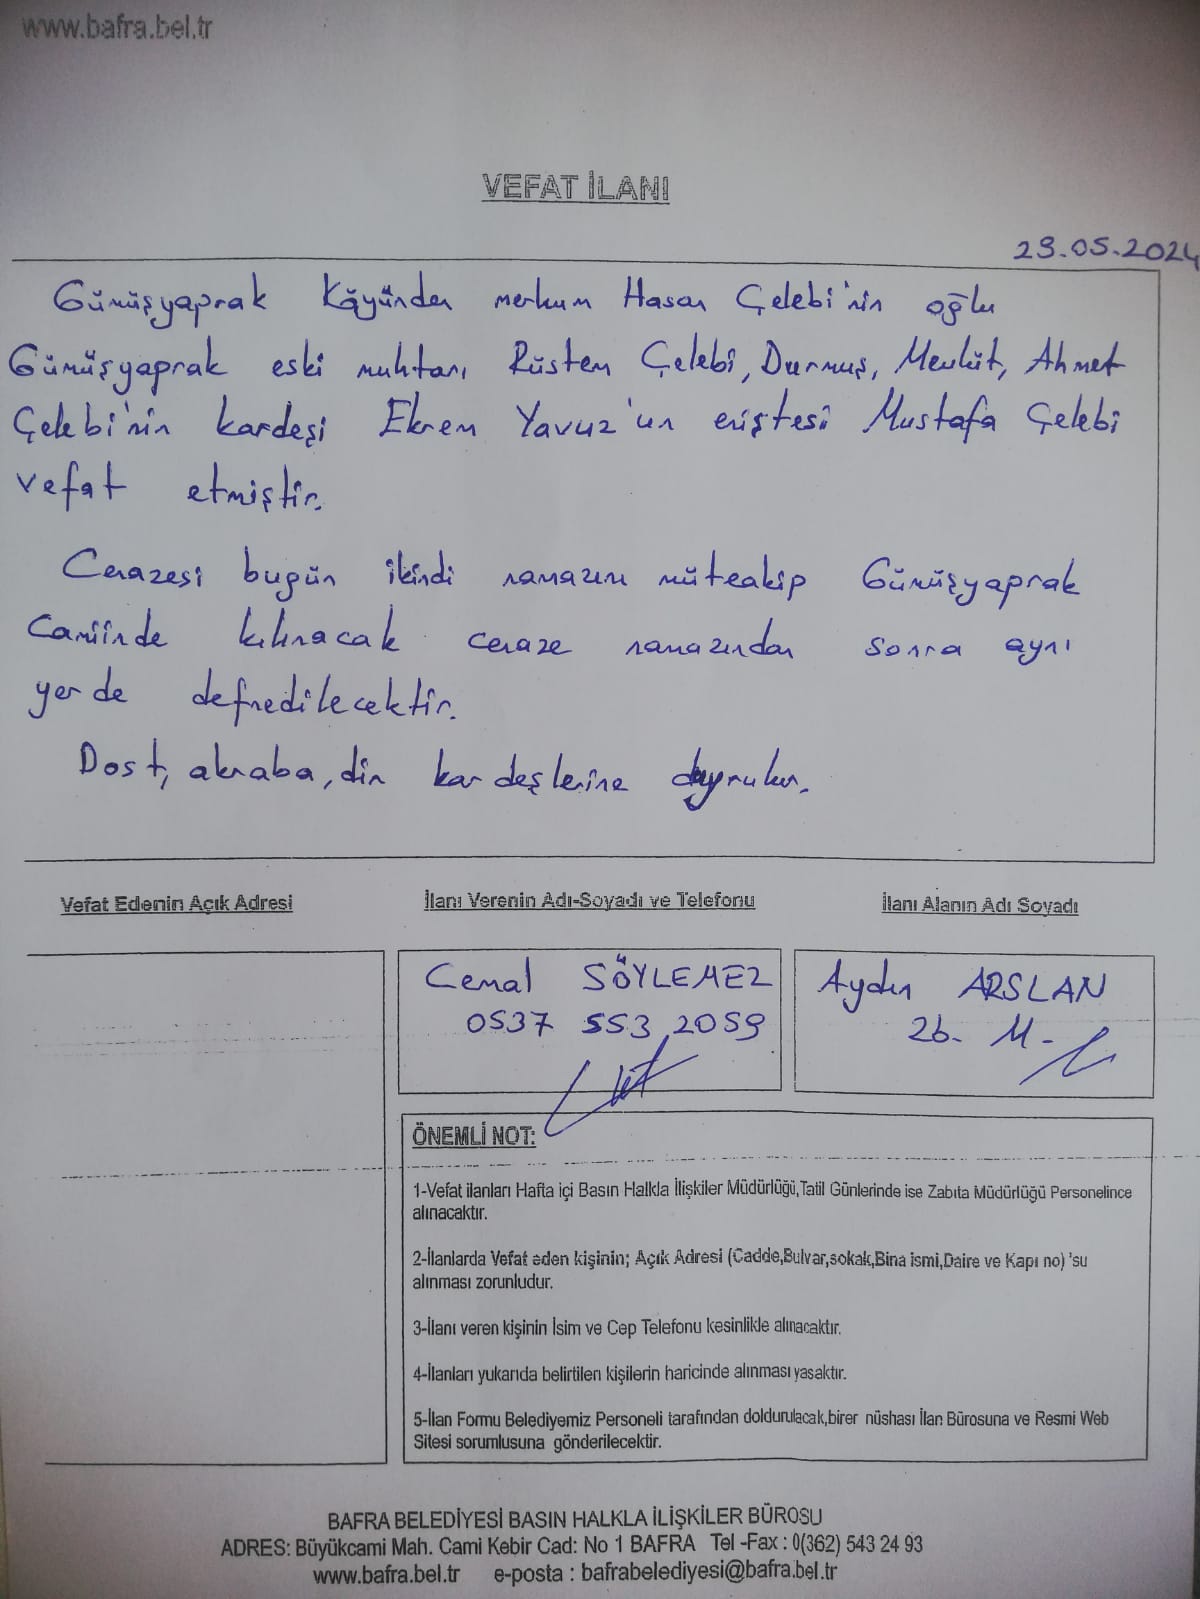 www.bafra.bel.tr
VEFAT İLANI
29.05.2024
Gümüşyaprak Köyünden merhum Hasan Çelebi'nin oğlu
Gümüşyaprak eski muhtarı Rüstem Çelebi, Durmuş, Mevlüt, Ahmet
Çelebi'nin kardeşi Ekrem Yavuz'un eniştesi Mustafa Çelebi
vefat etmiştir.
Cenazesi bugün ikindi namazını müteakip Gümüşyaprak
Camiinde kılınacak cenaze namazından sonra aynı
yerde defnedilecektir.
Dost, akraba, din kardeşlerine duyrulur.
Vefat Edenin Açık Adresi
İlanı Verenin Adı-Soyadı ve Telefonu
İlanı Alanın Adı Soyadı
Cemal SÖYLEMEZ
0537 553 2059
Aydın ARSLAN
Zb. M.
ÖNEMLİ NOT:
1-Vefat ilanları Hafta içi Basın Halkla İlişkiler Müdürlüğü,Tatil Günlerinde ise Zabıta Müdürlüğü Personelince
alınacaktır.
2-İlanlarda Vefat eden kişinin; Açık Adresi (Cadde,Bulvar,sokak,Bina ismi,Daire ve Kapı no) 'su
alınması zorunludur.
3-İlanı veren kişinin İsim ve Cep Telefonu kesinlikle alınacaktır.
4-İlanları yukarıda belirtilen kişilerin haricinde alınması yasaktır.
5-İlan Formu Belediyemiz Personeli tarafından doldurulacak,birer nüshası İlan Bürosuna ve Resmi Web
Sitesi sorumlusuna gönderilecektir.
BAFRA BELEDİYESİ BASIN HALKLA İLİŞKİLER BÜROSU
ADRES: Büyükcami Mah. Cami Kebir Cad: No 1 BAFRA Tel -Fax : 0(362) 543 24 93
www.bafra.bel.tr e-posta : bafrabelediyesi@bafra.bel.tr